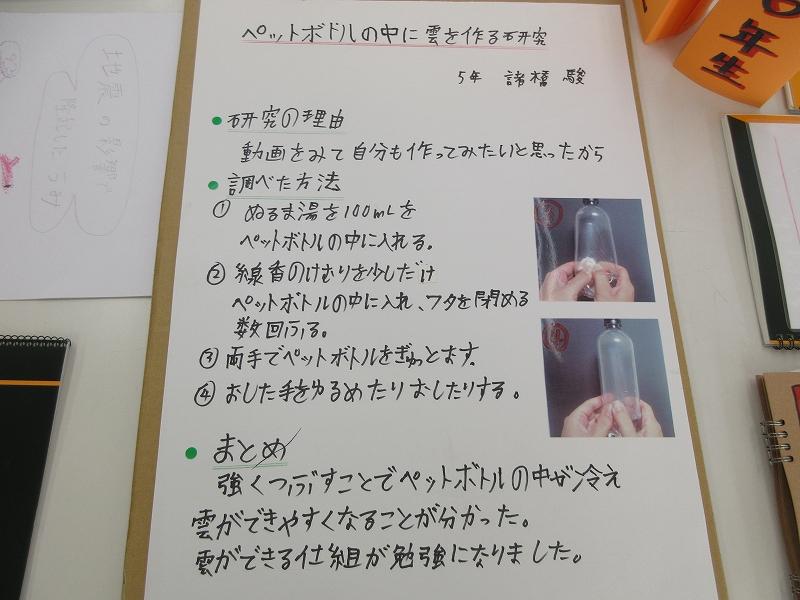 ペットボトルの中に雲を作る研究
5年 諸橋 駿
● 研究の理由
動画をみて自分も作ってみたいと思ったから
● 調べた方法
① ぬるま湯を100mLを
ペットボトルの中に入れる。
② 線香のけむりを少しだけ
ペットボトルの中に入れ、フタを閉める
数回ふる。
③ 両手でペットボトルをぎゅっとおす。
④ おした手をゆるめたりおしたりする。
● まとめ
強くつぶすことでペットボトルの中が冷え
雲ができやすくなることが分かった。
雲ができる仕組が勉強になりました。
年生
地震の影響で